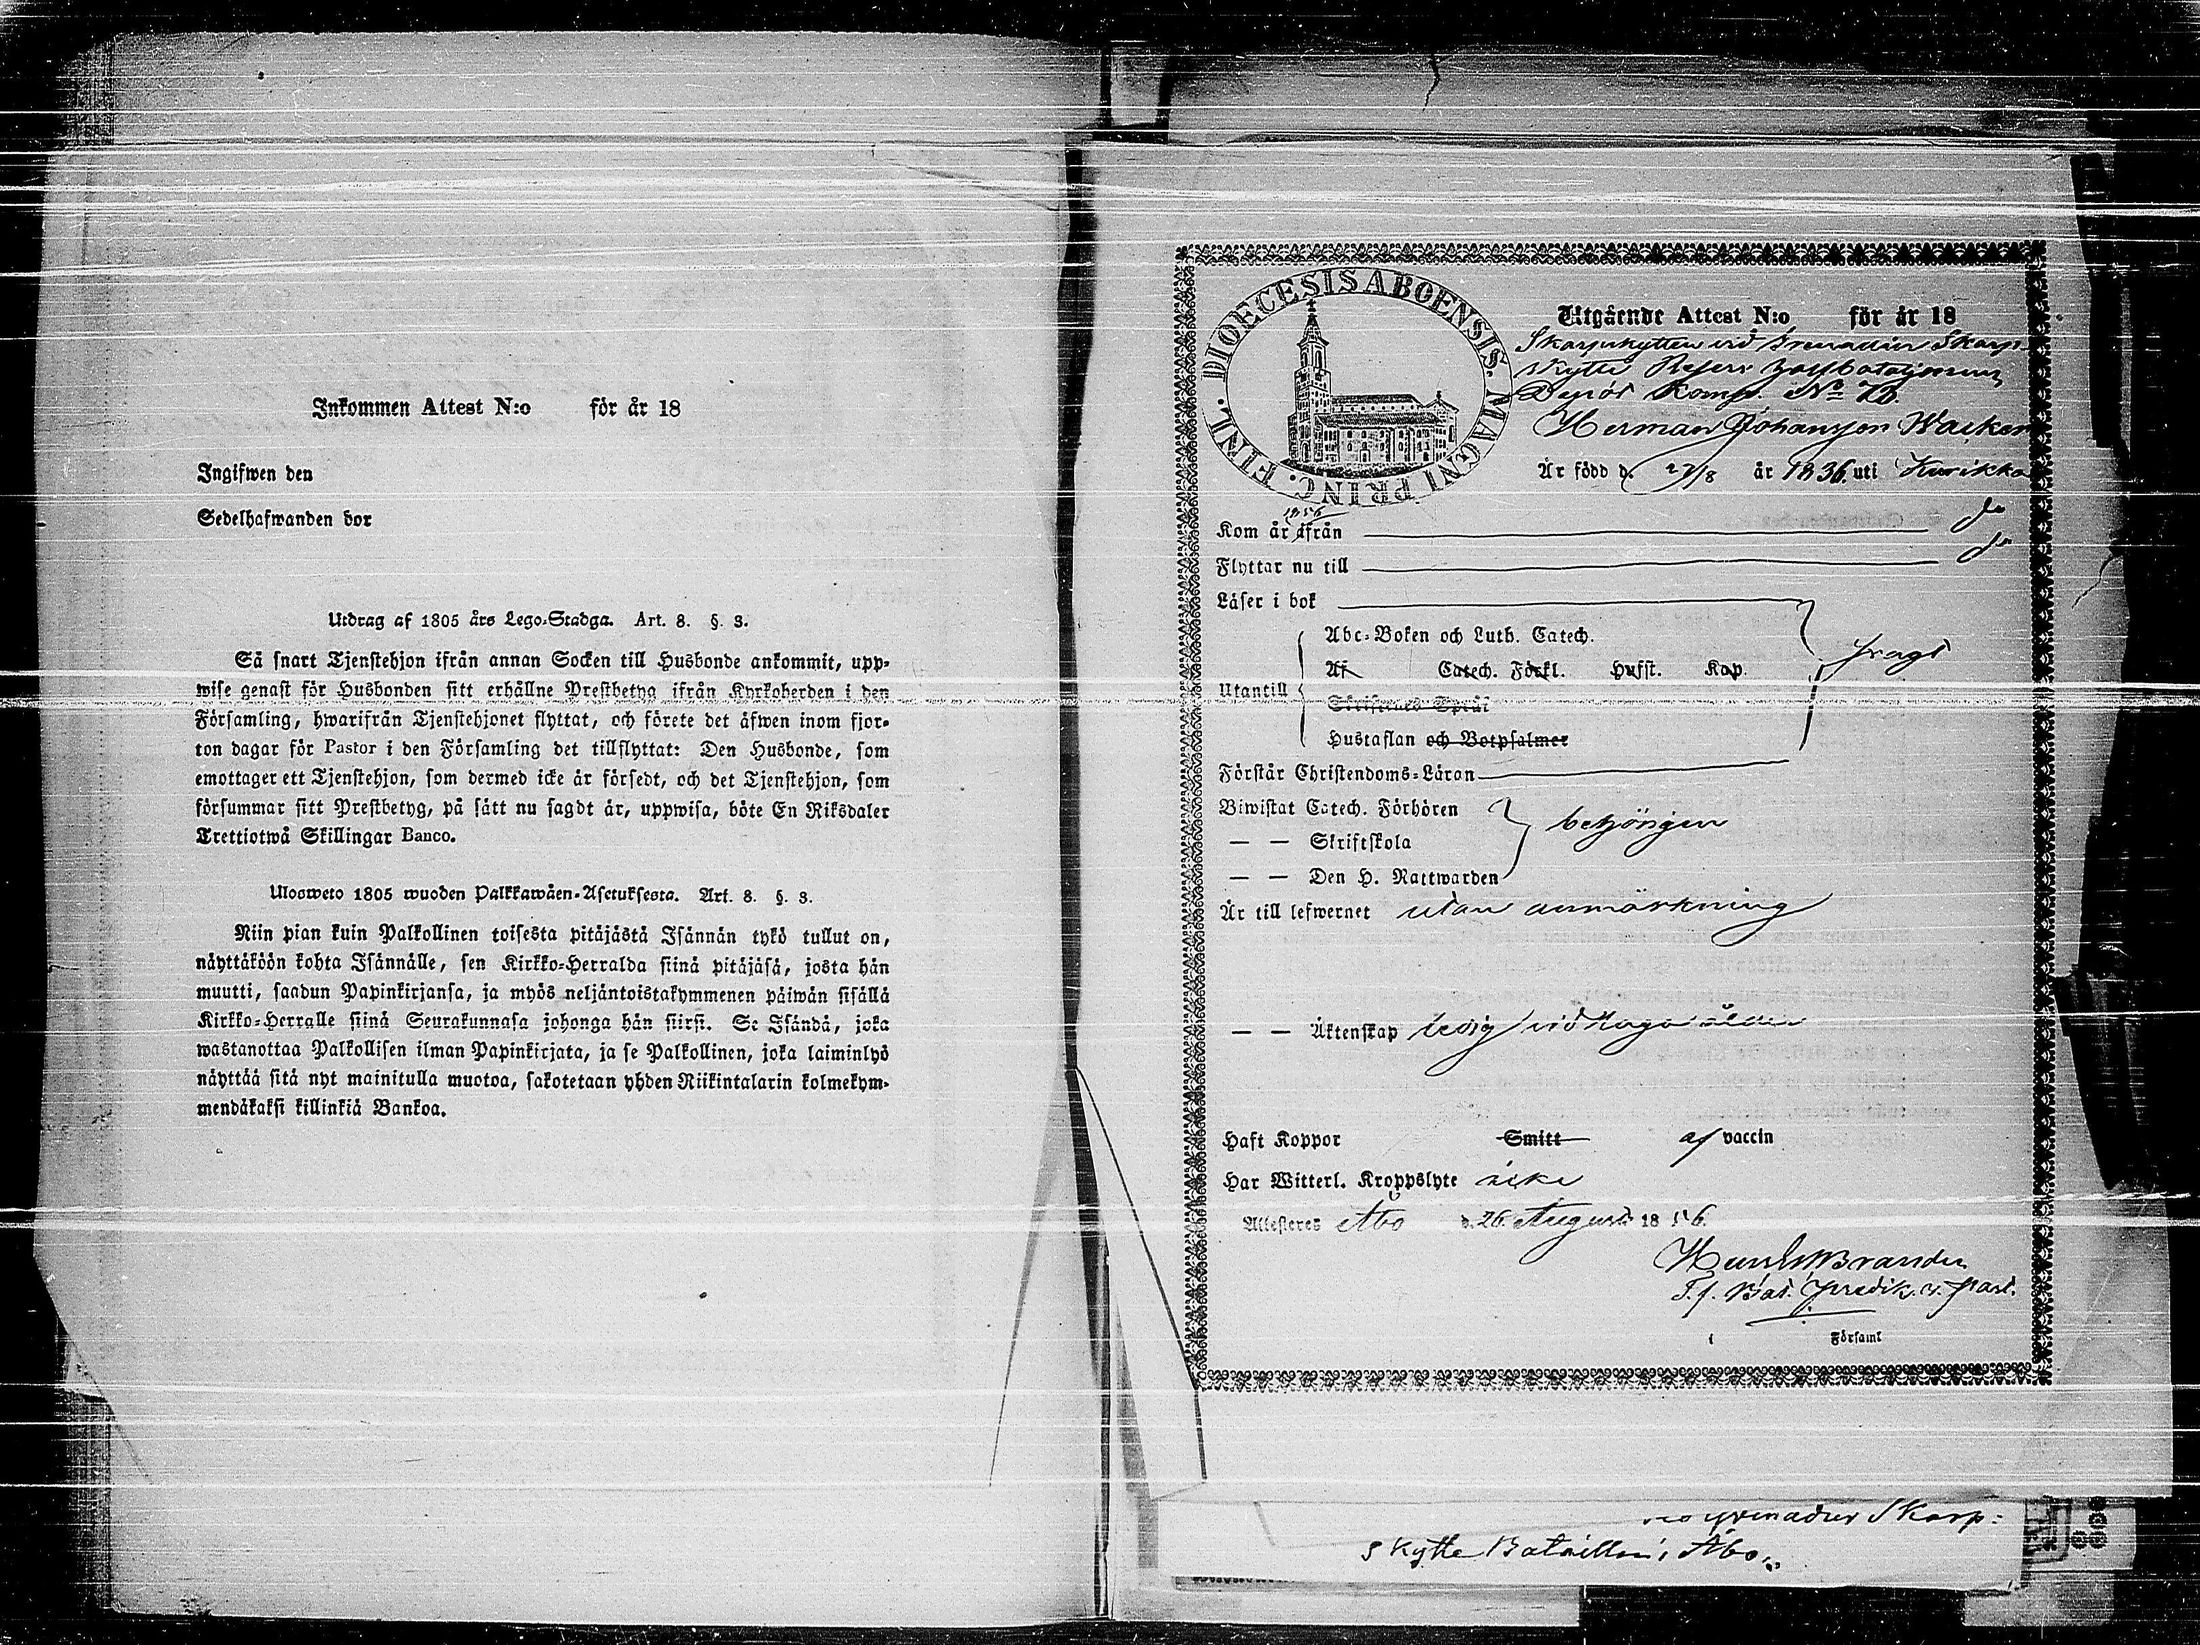 Inkommen Attest N:o för år 18
Ingifwen den
Sedelhafwanden bor
Utdrag af 1805 års Lego-Stadga. Art. 8. §. 3.
Så snart Tjenstehjon ifrån annan Socken till Husbonde ankommit, upp-
wise genast för Husbonden sitt erhållne Prestbetyg ifrån Kyrkoherden i den
Församling, hwarifrån Tjenstehjonet flyttat, och förete det äfwen inom fjor-
ton dagar för Pastor i den Församling det tillflyttat: Den Husbonde, som
emottager ett Tjenstehjon, som dermed icke är försedt, och det Tjenstehjon, som
försummar sitt Prestbetyg, på sätt nu sagdt är, uppwisa, böte En Riksdaler
Trettiotwå Skillingar Banco.
Ulosweto 1805 wuoden Palkkawäen-Asetuksesta. Art. 8. §. 3.
Niin pian kuin Palkollinen toisesta pitäjästä Isännän tykö tullut on,
näyttäköön kohta Isännälle, sen Kirkko-Herralda siinä pitäjäsä, josta hän
muutti, saadun Papinkirjansa, ja myös neljäntoistakymmenen päiwän sisällä
Kirkko-Herralle siinä Seurakunnasa johonga hän siirsi. Se Isändä, joka
wastanottaa Palkollisen ilman Papinkirjata, ja se Palkollinen, joka laiminlyö
näyttää sitä nyt mainitulla muotoa, sakotetaan yhden Riikintalarin kolmekym-
mendäkaksi killinkiä Bankoa.
DIOECESIS ABOENSIS. MAGNI PRINC. FINL.
Utgående Attest N:o för år 18
Skarpskytten vid Grenadier Skarp
skytte Reserv Bataljonens
Depôt Komp. No
Herman Johansson Wacker
Är född d. 27/8 år 1836 uti Kurikka
1856
Kom år ifrån do
Flyttar nu till do
Läser i bok
Abc-Boken och Luth. Catech.
Af Catech. Förkl. Husst. Kap.
Utantill
Skriftenes Språk
Hustaflan och Botpsalmer
svagt
Förstår Christendoms-Läran
Biwistat Catech. Förhören
— — Skriftskola
— — Den H. Nattwarden
behörigen
Är till lefwernet utan anmärkning
— — Äktenskap ledig vid
Haft Koppor Smitt af vaccin
Har Witterl. Kroppslyte icke
Attesteras Åbo d. 26 Augusti 1856
Brander
T. f. Bat. Predik. o. Past.
i Församl
Grenadier Skarp:
skytte Bataillon i Åbo.